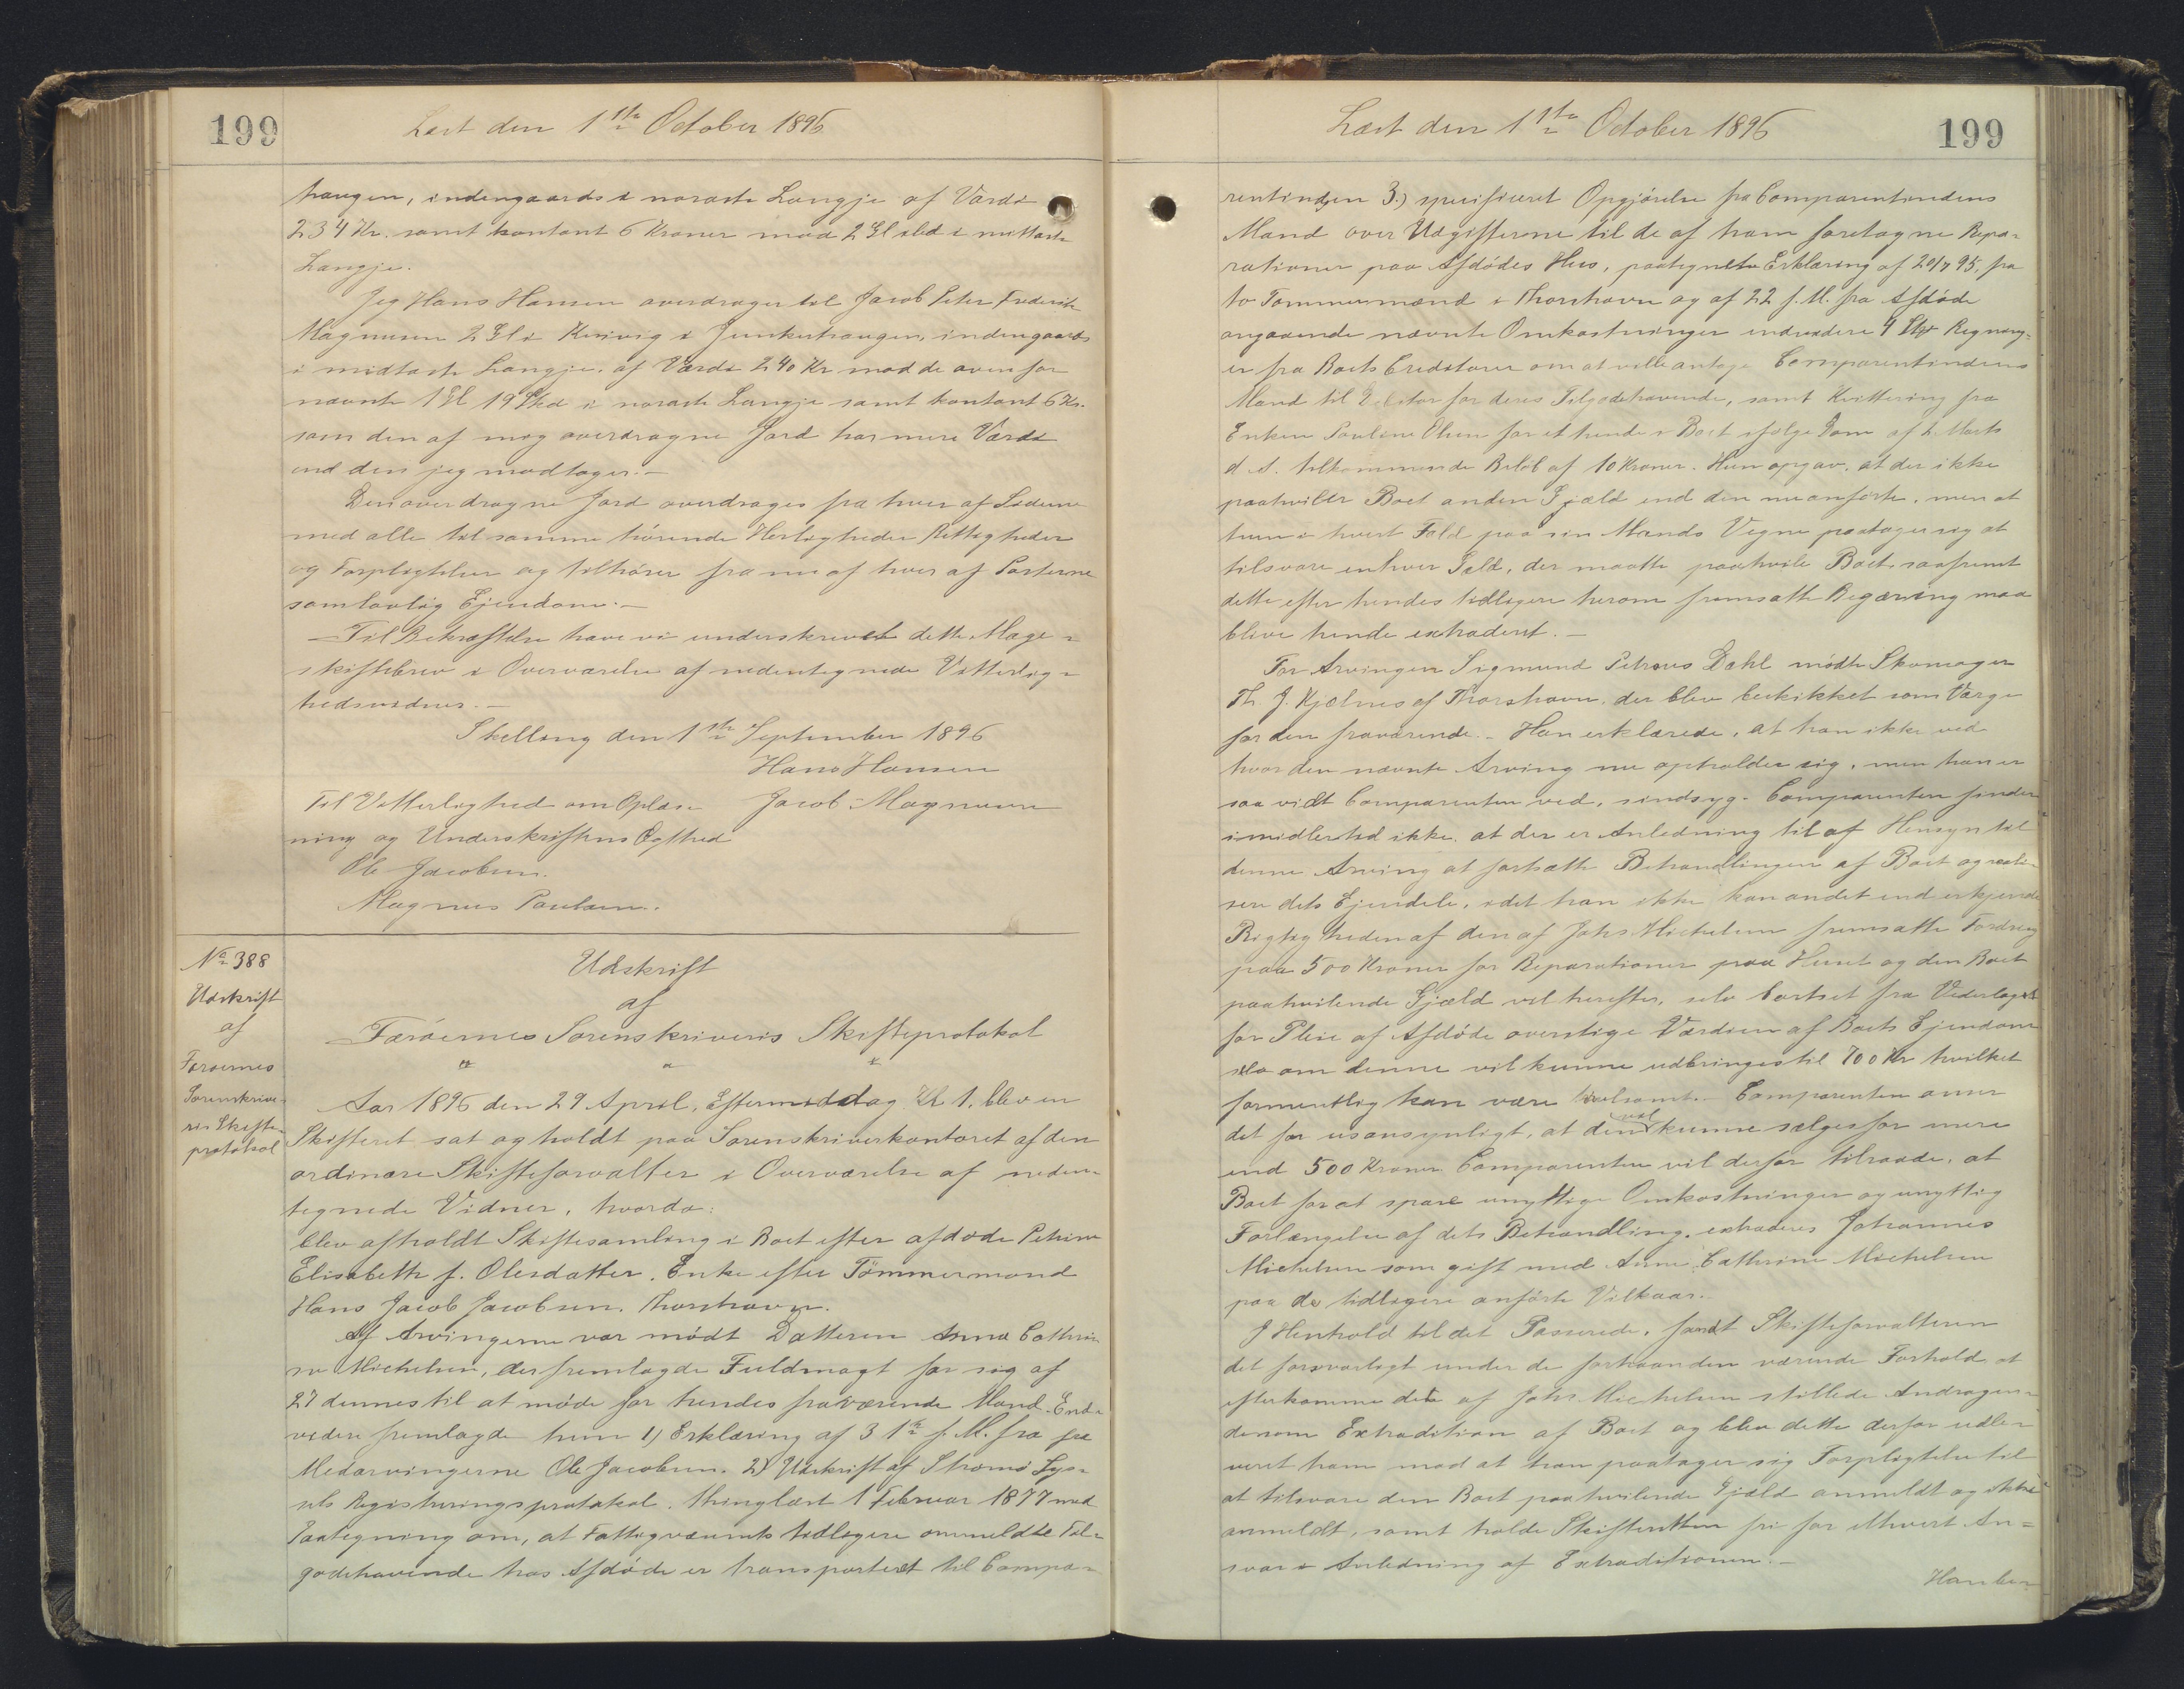 199
Læst den 1ste October 1896
haugen, indengaards i noraste Langje af Værdi
234 Kr. samt kontant 6 Kroner mod 2 Gl sld i mittaste
Langje.
Jeg Hans Hansen overdrager til Jacob Peter Frederik
Magnusen 2 Gl i Kvivig i Junkerhaugen, indengaards
i midtaste Langje. af Værdi 240 Kr mod de oven for
nævnte 1 Gl 19 Skd i noraste Langje samt kontant 6 Kr.
som den af mig overdragne Jord har mere Værdi
end den jeg modtager.—
Den overdragne Jord overdrages fra hver af Siderne
med alle til samme hørende Herligheder Rettigheder
og Forpligtelser og tilhører fra nu af hver af Parterne
som lovlig Ejendom.—
—Til Bekræftelse have vi underskrevet dette Mage=
skiftebrev i Overværelse af nedentegnede Vitterlig=
hedsvidner.—
Skelling den 1ste September 1896
Hans Hansen
Til Vitterlighed om Oplæs= Jacob Magnusen
ning og Underskriftens Ægthed
Ole Jacobsen.
Magnus Poulsen.
No 388
Udskrift
af
Færøernes
Sorenskrive=
ris Skifte=
protokol
Udskrift
af
Færøernes Sorenskriveris Skifteprotokol
Aar 1896 den 29 April, Eftermiddag Kl 1. blev en
Skifteret sat og holdt paa Sorenskriverkontoret af den
ordinære Skifteforvalter i Overværelse af neden=
tegnede Vidner, hvorda:
blev afholdt Skiftesamling i Boet efter afdøde Petrine
Elisabeth f. Olesdatter, Enke efter Tømmermand
Hans Jacob Jacobsen. Thorshavn.
Af Arvingerne var mødt Datteren Anna Cathri=
ne Michelsen, der fremlagde Fuldmagt for sig af
27 dennes til at møde for hendes fraværende Mand. End=
videre fremlagde hun 1) Erklæring af 31te f. M. fra fra
Medarvingerne Ole Jacobsen. 2) Udskrift af Strømø Sys=
sels Registreringsprotokol. thinglæst 1 Februar 1877 med
Paategning om, at Fattigvæsenets tidligere anmeldte Til=
godehavende hos Afdøde er transporteret til Compa=
Læst den 1ste October 1896
199
rentinden 3.) specificeret Opgjørelse fra Comparentindens
Mand over Udgifterne til de af ham foretagne Repa=
rationer paa Afdødes Hus, paategnet Erklæring af 20/7 95, fra
to Tømmermænd i Thorshavn og af 22 f. M. fra Afdøde
angaaende nævnte Omkostninger endvidere 4 Stkr Regning=
er fra Boets Creditorer om at ville antage Comparentindens
Mand til Debitor for deres Tilgodehavende, samt Kvittering fra
Enken Poulene Olsen for et hende i Boet ifølge Dom af 2 Marts
d. A. tilkommende Beløb af 10 Kroner. Hun opgav, at der ikke
paahviler Boet anden Gjæld end den nu anførte, men at
hun i hvert Fald paa sin Mands Vegne paatager sig at
tilsvare enhver Gæld, der maatte paahvile Boet, saafremt
dette efter hendes tidligere herom fremsatte Begæring maa
blive hende extraderet.—
For Arvingen Sigmund Petræus Dahl mødte Skomager
Th. J. Kjølnes af Thorshavn, der blev beskikket som Værge
for den fraværende.— Han erklærede, at han ikke ved
hvor den nævnte Arving nu opholder sig, men han er
saa vidt Comparenten ved, sindsyg. Comparenten finder
imidlertid ikke, at der er Anledning til af Hensyn til
denne Arving at fortsætte Behandlingen af Boet og reali=
sere dets Ejendele, idet han ikke kan andet end erkjende
Rigtigheden af den af Johs Michelsen fremsatte Fordring
paa 500 Kroner for Reparationer paa Huset og den Boet
paahvilende Gjæld vil herefter, selv bortset fra Vederlaget
for Pleie af Afdøde overstige Værdien af Boets Ejendom
selv om denne vil kunne udbringes til 700 Kr hvilket
formentlig kan være tvivlsomt.— Comparenten anser
det for usansynligt, at den vil kunne sælges for mere
end 500 Kroner. Comparenten vil derfor tilraade, at
Boet for at spare unyttige Omkostninger og unyttig
Forlængelse af dets Behandling, extraderes Johannes
Michelsen som gift med Anne Cathrine Michelsen
paa de tidligere anførte Vilkaar.—
I Henhold til det Passerede, fandt Skifteforvalteren
det forsvarligt under de forhaanden værende Forhold at
efterkomme det af Johs Michelsen stillede Andragen=
de om Extradition af Boet og blev dette derfor udle=
veret ham mod at han paatager sig Forpligtelse til
at tilsvare den Boet paahvilende Gjæld anmeldt og ikke
anmeldt, samt holde Skifteretten fri for ethvert An=
svar i Anledning af Extraditionen.—
Han be=